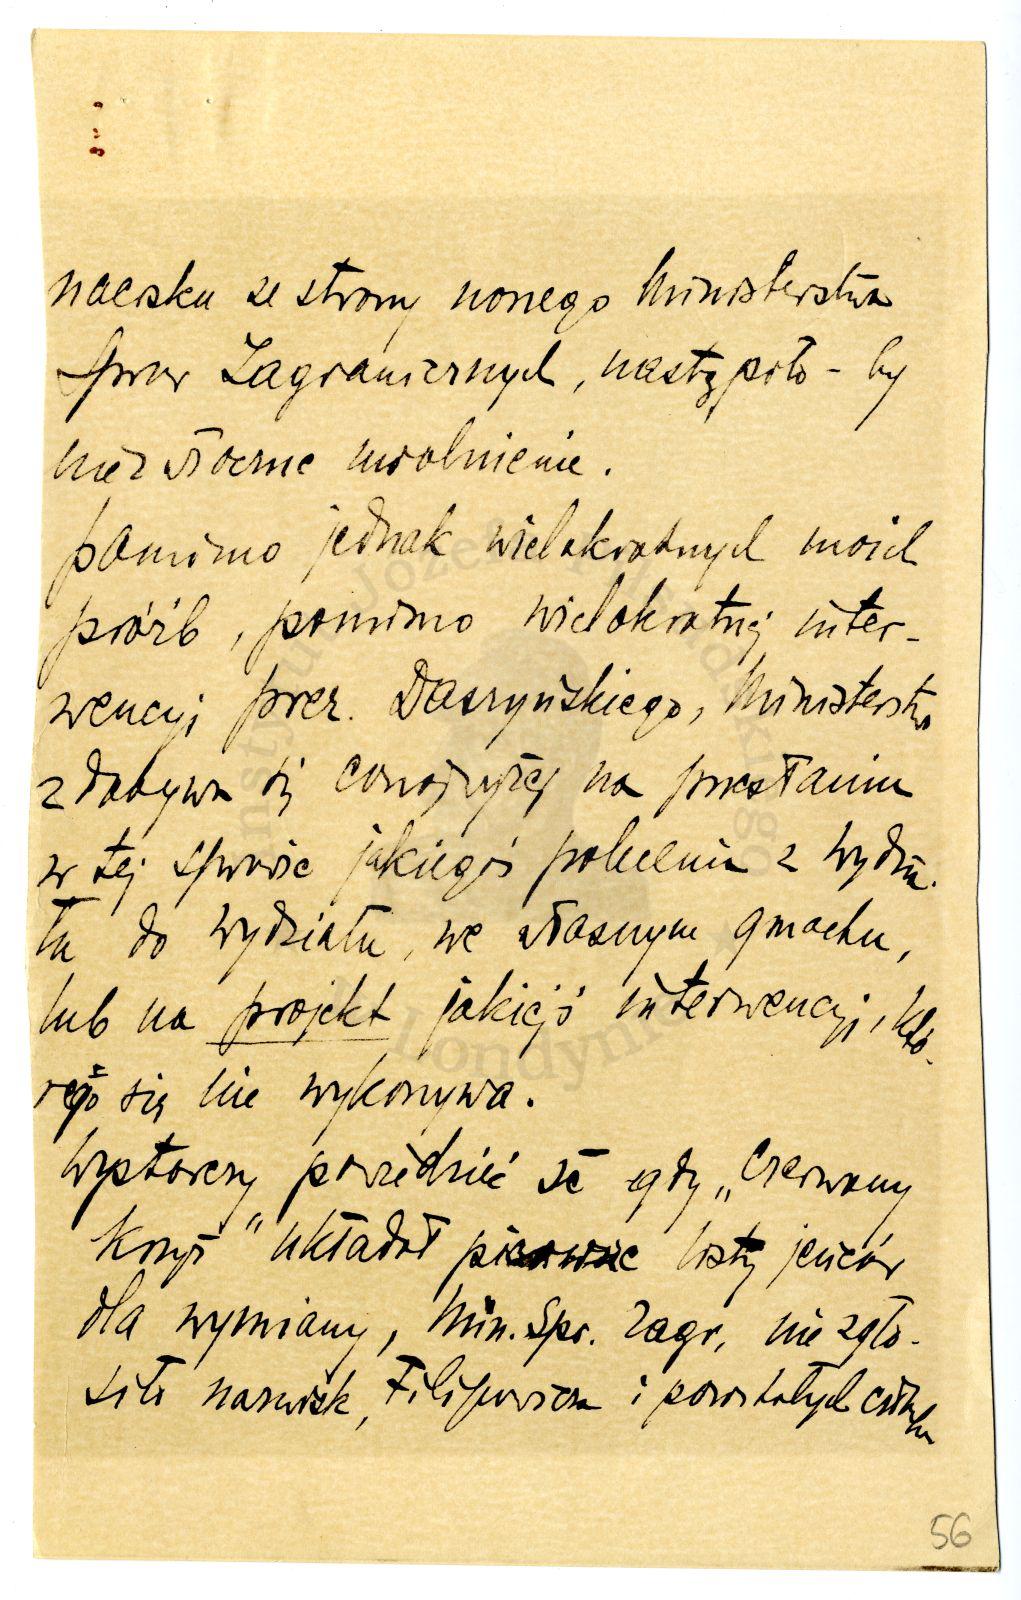 nacisku ze strony naszego Ministerstwa
Spraw Zagranicznych, nastąpiło-by
niezwłoczne uwolnienie.
Pomimo jednak wielokrotnych moich
próśb, pomimo wielokrotnej inter-
wencyj prez. Daszyńskiego, Ministerstwo
zdobywa się conajwyżej na przesłanie
w tej sprawie jakiegoś polecenia z wydzia-
łu do wydziału, we własnym gmachu,
lub na projekt jakiejś interwencyi, któ-
rego się nie wykonywa.
Wystarczy powiedzieć że gdy „Czerwony
Krzyż" układał listy jeńców
dla wymiany, Min. Spr. Zagr. nie zgło-
siło nazwisk, Filipowicza i pozostałych
56
Instytut Józefa Piłsudskiego
w Londynie